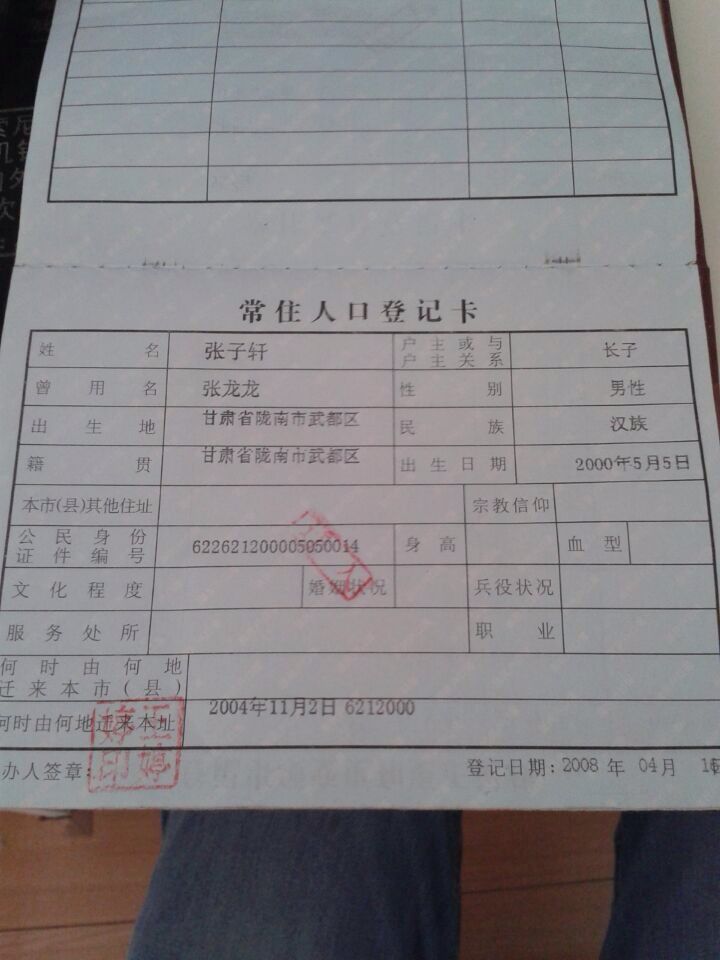 常住人口登记卡
姓名 张子轩 户主或与户主关系 长子
曾用名 张龙龙 性别 男性
出生地 甘肃省陇南市武都区 民族 汉族
籍贯 甘肃省陇南市武都区 出生日期 2000年5月5日
本市(县)其他住址 宗教信仰
公民身份证件编号 622621200005050014 身高 血型
文化程度 婚姻状况 兵役状况
服务处所 职业
何时由何地迁来本市(县)
何时由何地迁来本址 2004年11月2日 6212000
办人签章: 登记日期: 2008年 04月